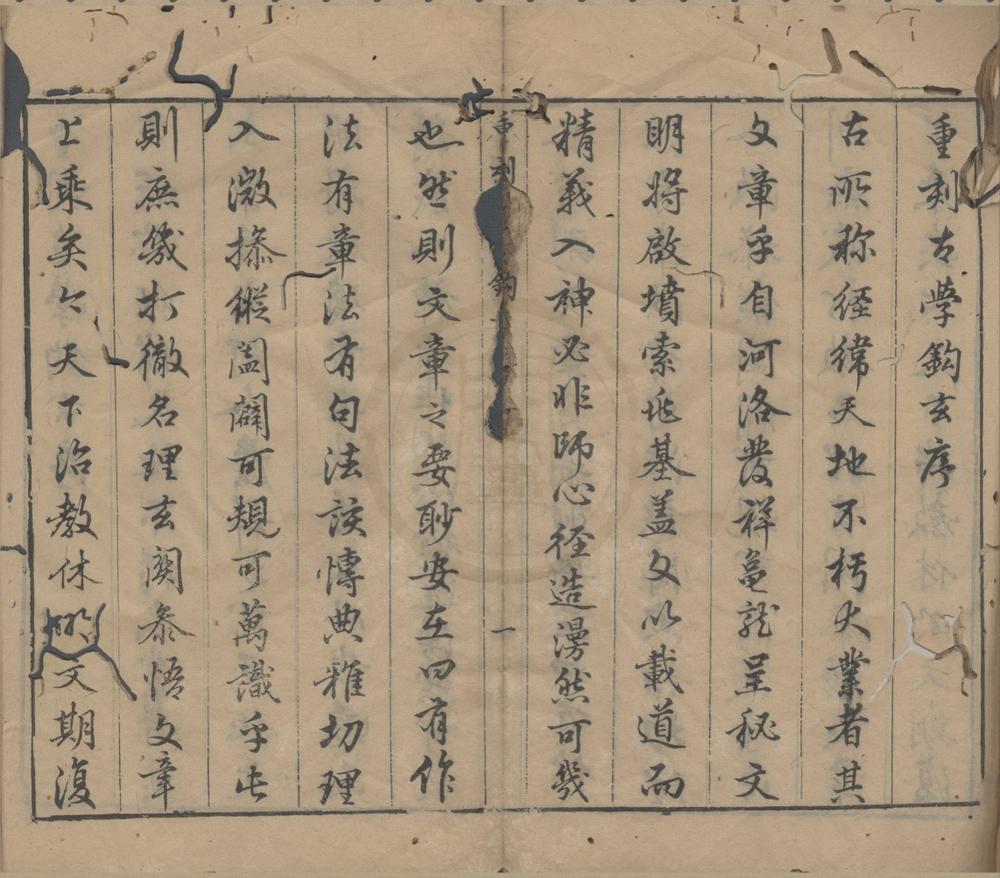 重刻古學鈎玄序
古所称經緯天地不朽大業者其
文章乎自河洛發祥龜龍呈秘文
明將啟墳索兆基盖文以載道而
精義入神必非師心徑造漫然可幾
重刻 鈎 一
也然則文章之要眇安在曰有作
法有章法有句法該博典雅切理
入微操縱闔闢可規可萬識乎此
則庶幾打徹名理玄関叅悟文章
上乘矣今天下治教休明文期復